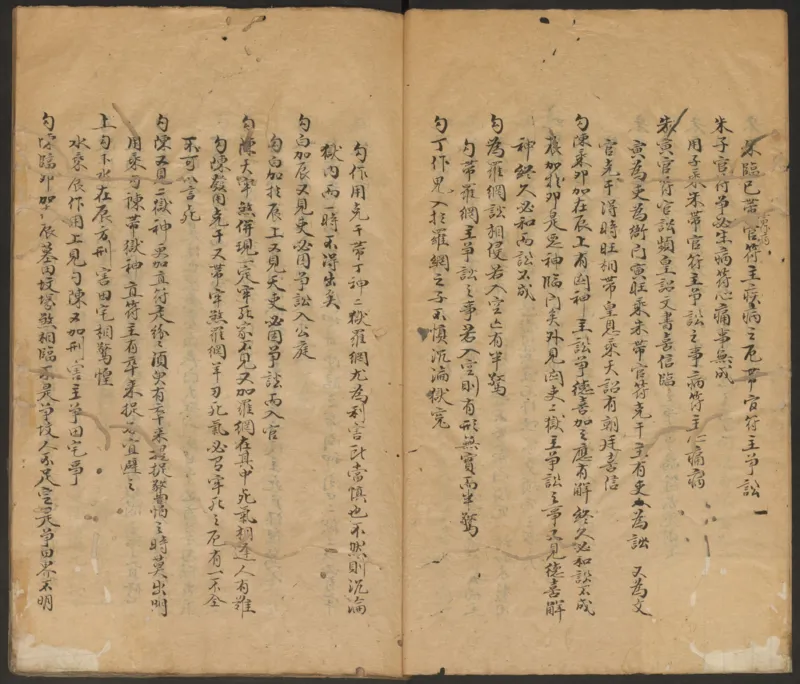 朱臨巳帶官符主疾病之厄帶官符主爭訟
朱子官符爭必生病符心痛事無成
用子乘朱帶官符主爭訟之事病符主心痛病
朱寅官符官訟頻皇詔文書喜信臨
寅為吏為衙門寅旺乘朱帶官符克干主有吏人為訟 又為文
官克干得時旺相帶皇恩乘天詔有朝廷喜信
勾陳乘卯加在辰上有凶神主訟爭德喜加之應有解終久必和訟不成
辰加於卯是惡神臨門矣外見凶吏二獄主爭訟之事又見德喜解
神終久必和而訟不成
勾為羅網訟相侵若入空亡有半驚
勾帶羅網主爭訟之事若入空則有形無實而半驚
勾丁作鬼入於羅網之子不慎沉淪獄冤
勾作用克干帶丁神二獄羅網尤為利害此當慎也不然則沉淪
獄內而一時不得出矣
勾白加辰又見吏必因爭訟入公庭
勾白加於辰上又見天吏必因爭訟而入官
勾陳天牢煞併現一定牢死家不見又加羅網在其中死氣相逢人有難
勾陳發用克干又帶牢煞羅網羊刃死氣必有牢死之厄有一不全
不可以言死
勾陳又見二獄神更加直符走紛紛須臾有牽來提捉發用惕之時莫出明
用乘勾陳帶獄神直符主有牽來捉必宜避之
上勾下水在辰方刑害田宅相驚惶
水乘辰作用上見勾陳又加刑害主爭田宅事
勾陳臨卯加辰墓田墳塋煞相臨不是爭墳人不足定是爭田界不明